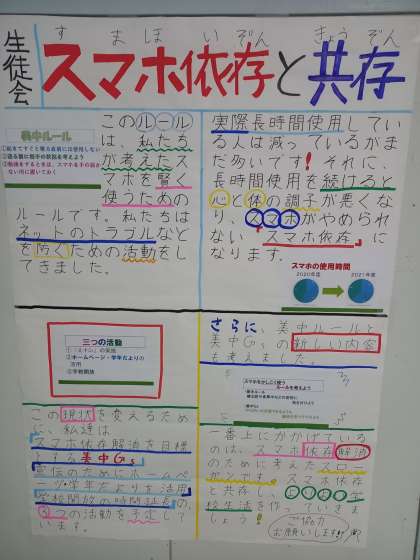 生徒会
すまほいぞん きょうぞん
スマホ依存と共存
美中ルール
このルール
は、私たち
が考えたス
マホを賢く
使うための
ルールです。私たちは
ネットのトラブルなど
を防ぐための活動をし
てきました。
実際長時間使用してい
る人は減っているがま
だ多いです!それに、
長時間使用を続けると
心と体の調子が悪くな
り、スマホがやめられ
ない『スマホ依存』に
なります。
スマホの使用時間
2020年度
2021年度
三つの活動
②ホームページ・学年だよりの
活用
③学校開放
この現状を変えるため
に、私達は
スマホ依存解消を目標
とする美中Gs
配信のためにホームペ
ージ・学年だよりを活用
学校開放の時間延長の、
3つの活動を予定して
います。
さらに、美中ルールと
美中Gsの新しい内容
も考えました。
スマホをかしこく使う
ルールを考えよう
一番上にかかげている
のは、スマホ依存解消
のために考えたスロー
ガンです。スマホ依存
と共存し、
校生活を作っていきま
しょう!
ご協力
お願いします!